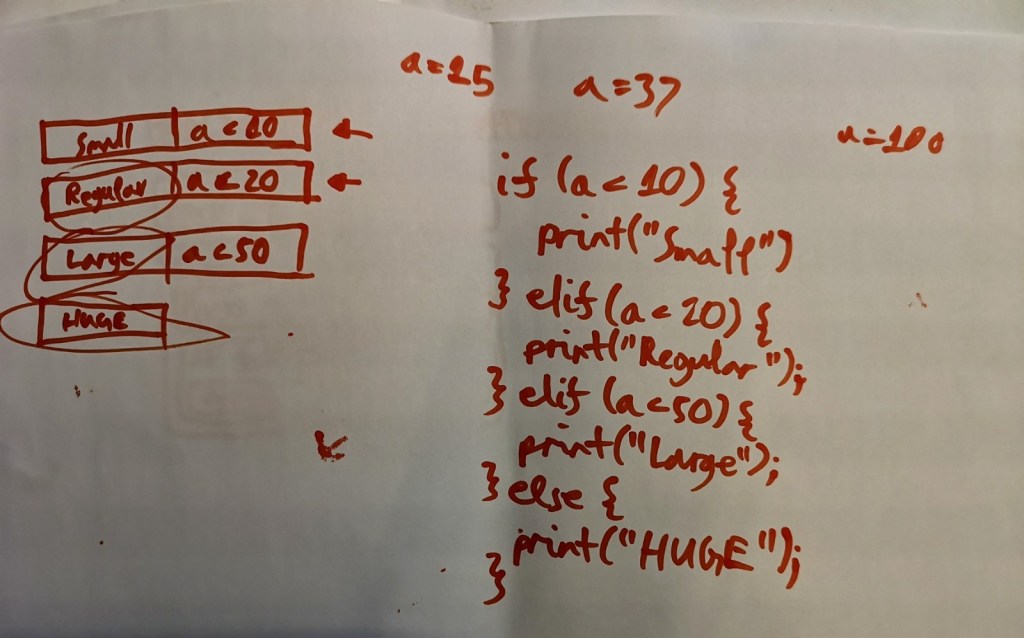 a=15
a=37
a=100
Small a<10
Regular a<20
Large a<50
HUGE
if (a<10) {
print("Small")
} elif (a<20) {
print("Regular");
} elif (a<50) {
print("Large");
} else {
print("HUGE");
}